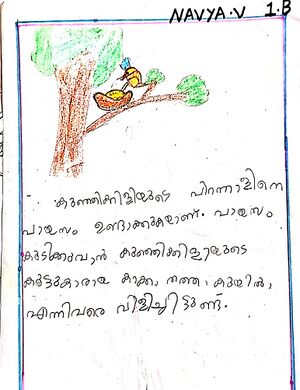 NAVYA.V 1.B
കുഞ്ഞിക്കിളിയുടെ പിറന്നാളിനെ
പായസം ഉണ്ടാക്കുകയാണ്. പായസം
കുടിക്കുവാൻ കുഞ്ഞിക്കിളിയുടെ
കൂട്ടുകാരായ കാക്ക, തത്ത, കുയിൽ,
എന്നിവരെ വിളിച്ചിട്ടുണ്ട്.